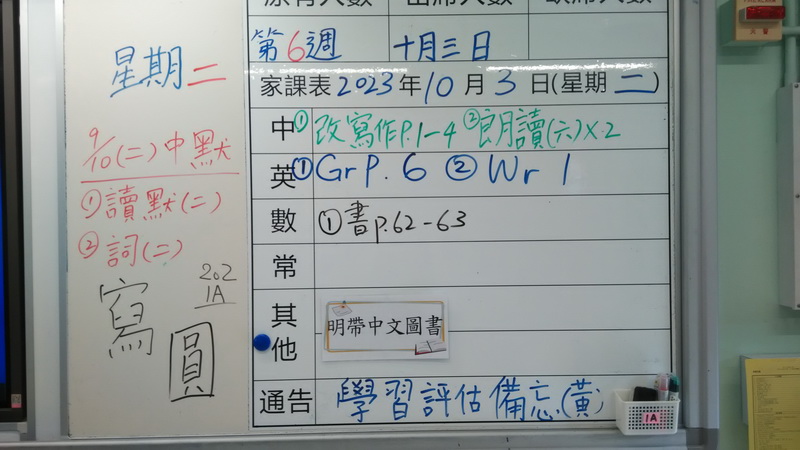 原有人數 出席人數 缺席人數
第6週 十月三日
家課表2023年10月3日(星期二)
中 ①改寫作P.1-4 ②朗讀(六)×2
英 ①Gr P.6 ②Wr 1
數 ①書p.62-63
常
其他 明帶中文圖書
通告 學習評估備忘(黃)
1A
星期二
9/10(二)中默
①讀默(二)
②詞(二)
202
1A
寫
圓
火警